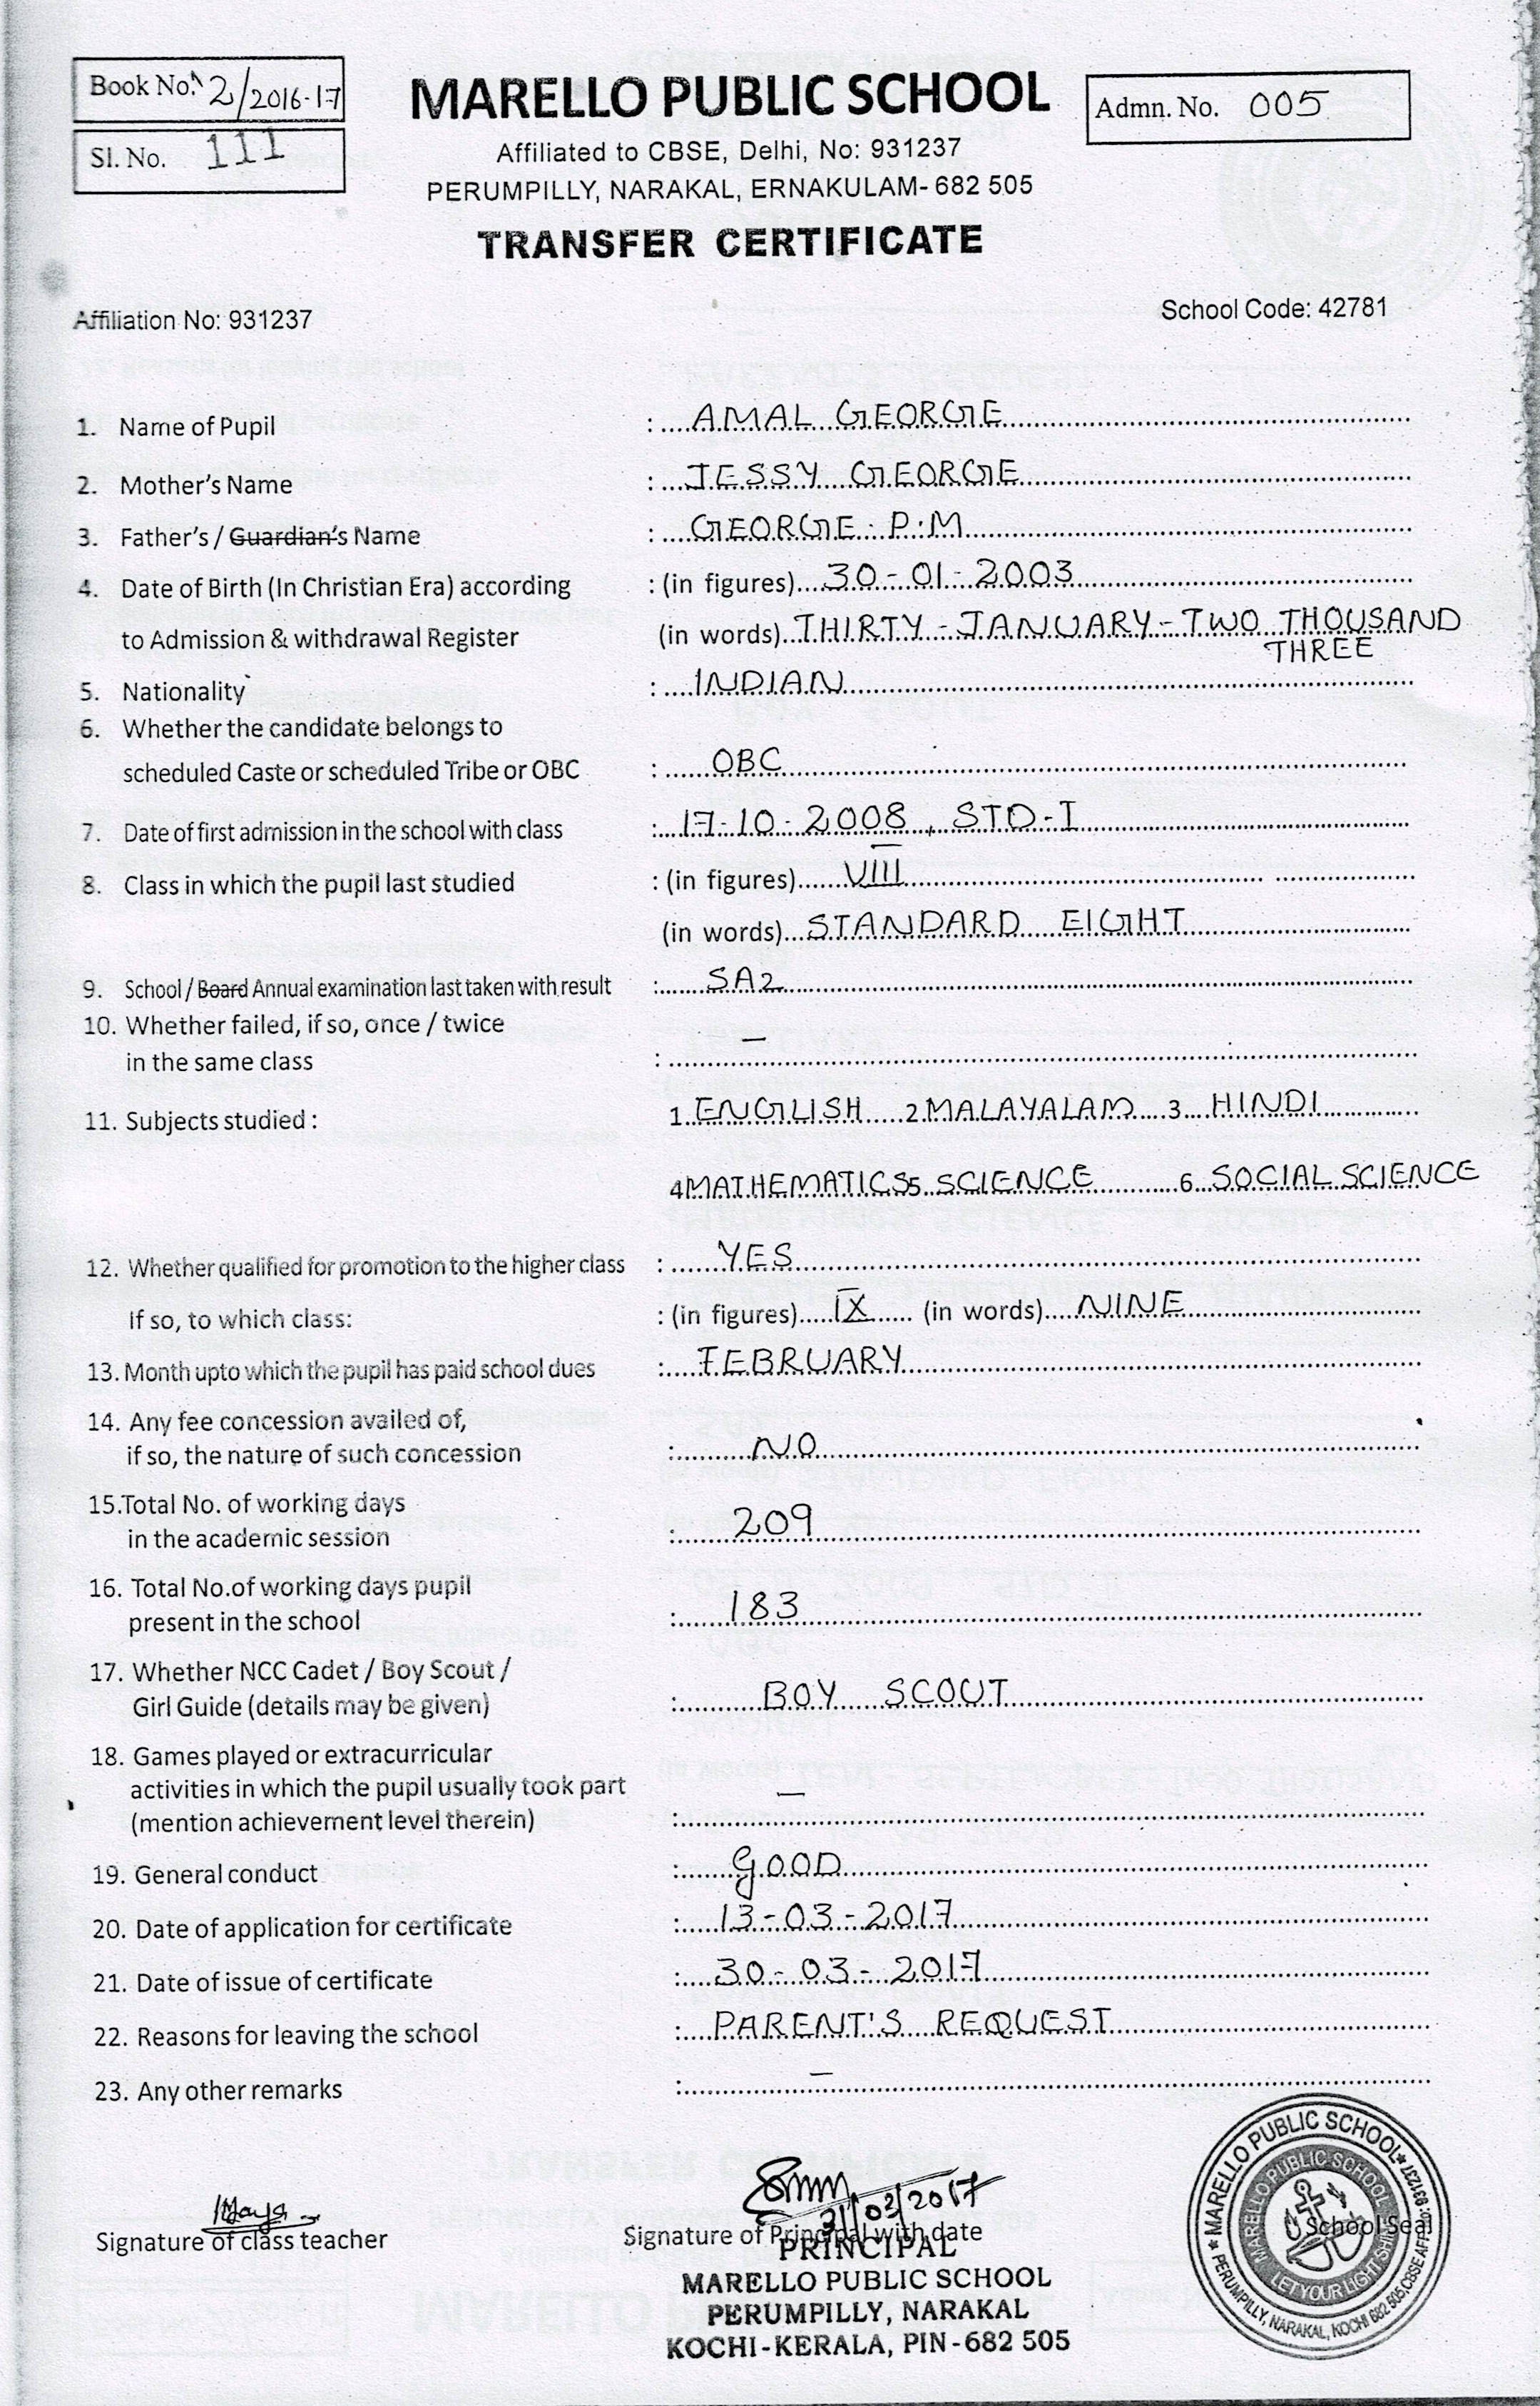 Book No. 2/2016-17
Sl. No. 111
MARELLO PUBLIC SCHOOL
Admn. No. 005
Affiliated to CBSE, Delhi, No: 931237
PERUMPILLY, NARAKAL, ERNAKULAM- 682 505
TRANSFER CERTIFICATE
Affiliation No: 931237
School Code: 42781
1. Name of Pupil : AMAL GEORGE
2. Mother's Name : JESSY GEORGE
3. Father's / Guardian's Name : GEORGE. P.M
4. Date of Birth (In Christian Era) according : (in figures) 30-01-2003
to Admission & withdrawal Register (in words) THIRTY - JANUARY - TWO THOUSAND
THREE
5. Nationality : INDIAN
6. Whether the candidate belongs to
scheduled Caste or scheduled Tribe or OBC : OBC
7. Date of first admission in the school with class : 17-10-2008, STD-I
8. Class in which the pupil last studied : (in figures) VIII
(in words) STANDARD EIGHT
9. School / Board Annual examination last taken with result : SA2
10. Whether failed, if so, once / twice
in the same class : —
11. Subjects studied : 1. ENGLISH 2. MALAYALAM 3. HINDI
4 MATHEMATICS 5. SCIENCE 6. SOCIAL SCIENCE
12. Whether qualified for promotion to the higher class : YES
If so, to which class: : (in figures) IX (in words) NINE
13. Month upto which the pupil has paid school dues : FEBRUARY
14. Any fee concession availed of,
if so, the nature of such concession : NO
15. Total No. of working days
in the academic session : 209
16. Total No.of working days pupil
present in the school : 183
17. Whether NCC Cadet / Boy Scout /
Girl Guide (details may be given) : BOY SCOUT
18. Games played or extracurricular
activities in which the pupil usually took part
(mention achievement level therein) : —
19. General conduct : GOOD
20. Date of application for certificate : 13-03-2017
21. Date of issue of certificate : 30-03-2017
22. Reasons for leaving the school : PARENT'S REQUEST
23. Any other remarks : —
31/03/2017
Signature of class teacher
Signature of Principal with date
School Seal
PRINCIPAL
MARELLO PUBLIC SCHOOL
PERUMPILLY, NARAKAL
KOCHI-KERALA, PIN-682 505
★ MARELLO PUBLIC SCHOOL ★
PERUMPILLY, NARAKAL, KOCHI 682 505. CBSE AFF. No: 931237
MARELLO PUBLIC SCHOOL
LET YOUR LIGHT SHINE